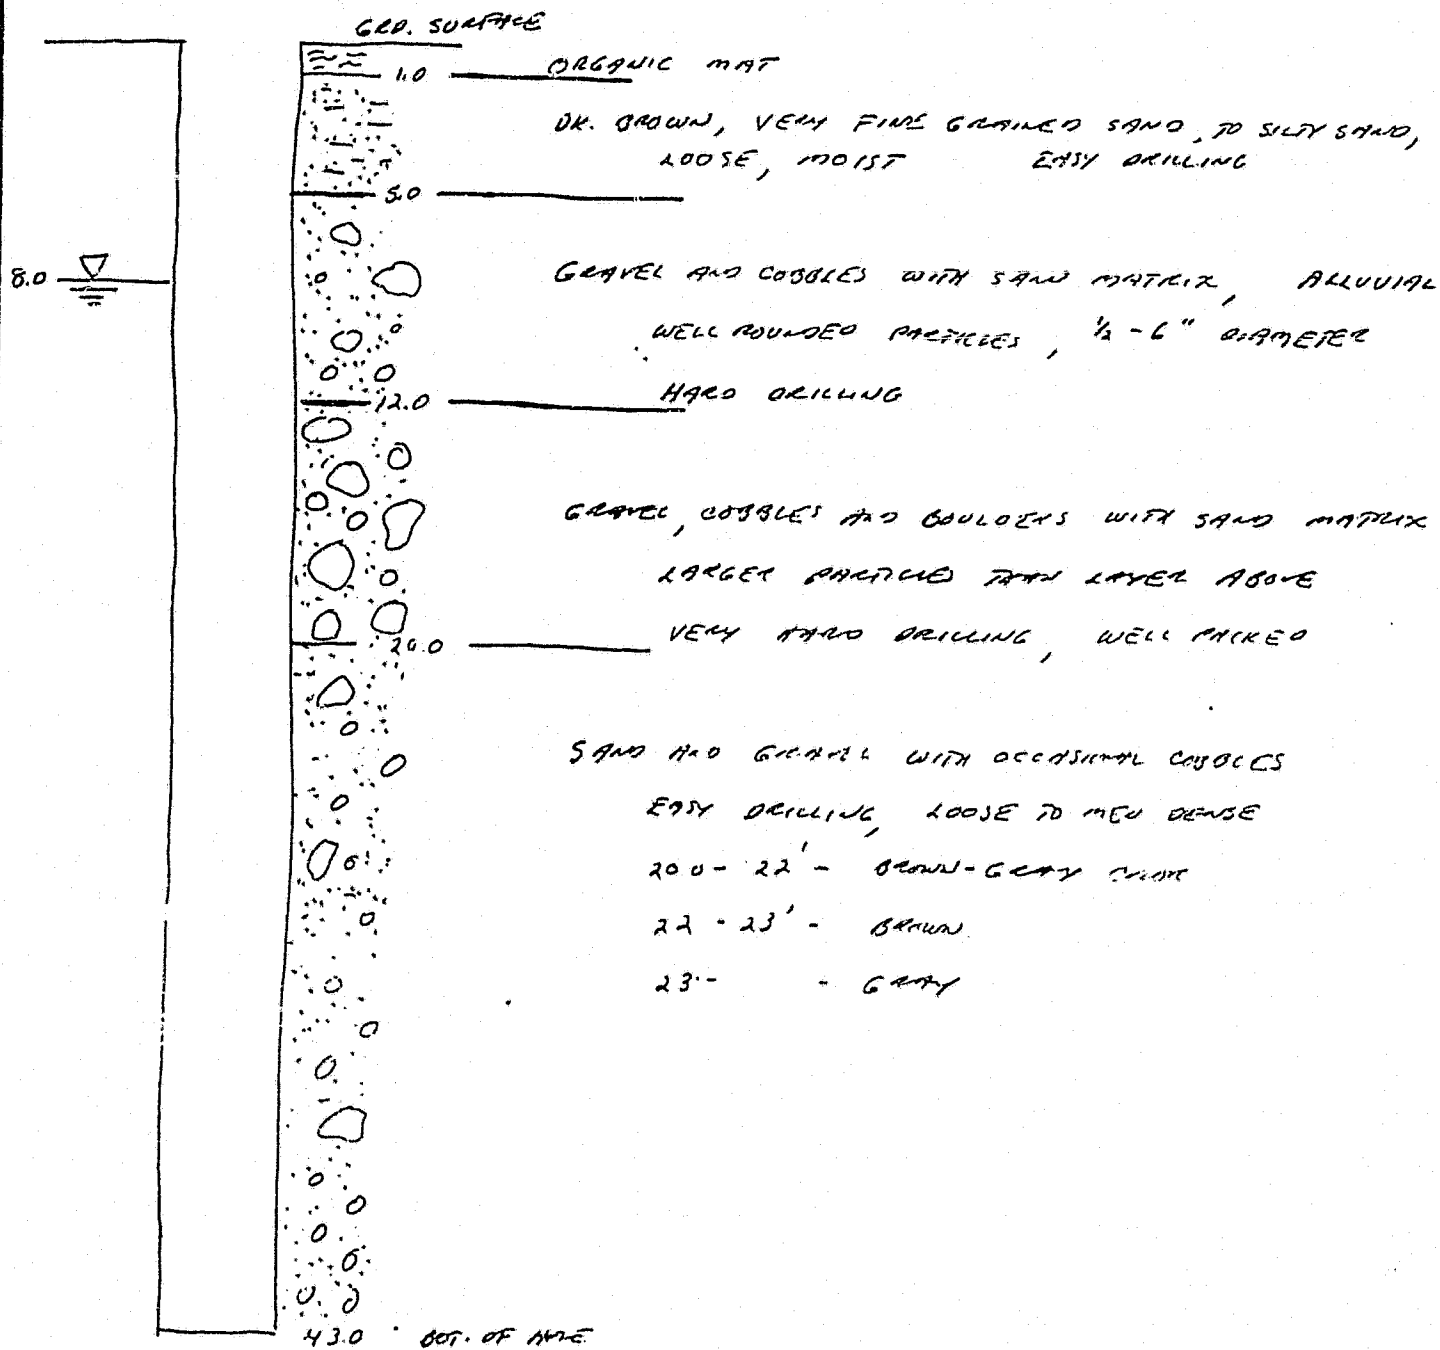 GRD. SURFACE
1.0 ORGANIC MAT
DK. BROWN, VERY FINE GRAINED SAND, TO SILTY SAND,
LOOSE, MOIST EASY DRILLING
5.0
8.0
GRAVEL AND COBBLES WITH SAND MATRIX, ALLUVIAL
WELL ROUNDED PARTICLES, 1/2 - 6" DIAMETER
HARD DRILLING
12.0
GRAVEL, COBBLES AND BOULDERS WITH SAND MATRIX
LARGER PARTICLES THAN LAYER ABOVE
VERY HARD DRILLING, WELL PACKED
20.0
SAND AND GRAVEL WITH OCCASIONAL COBBLES
EASY DRILLING, LOOSE TO MED DENSE
20.0 - 22' - BROWN-GRAY COLOR
22 - 23' - BROWN
23 - - GRAY
43.0 BOT. OF HOLE